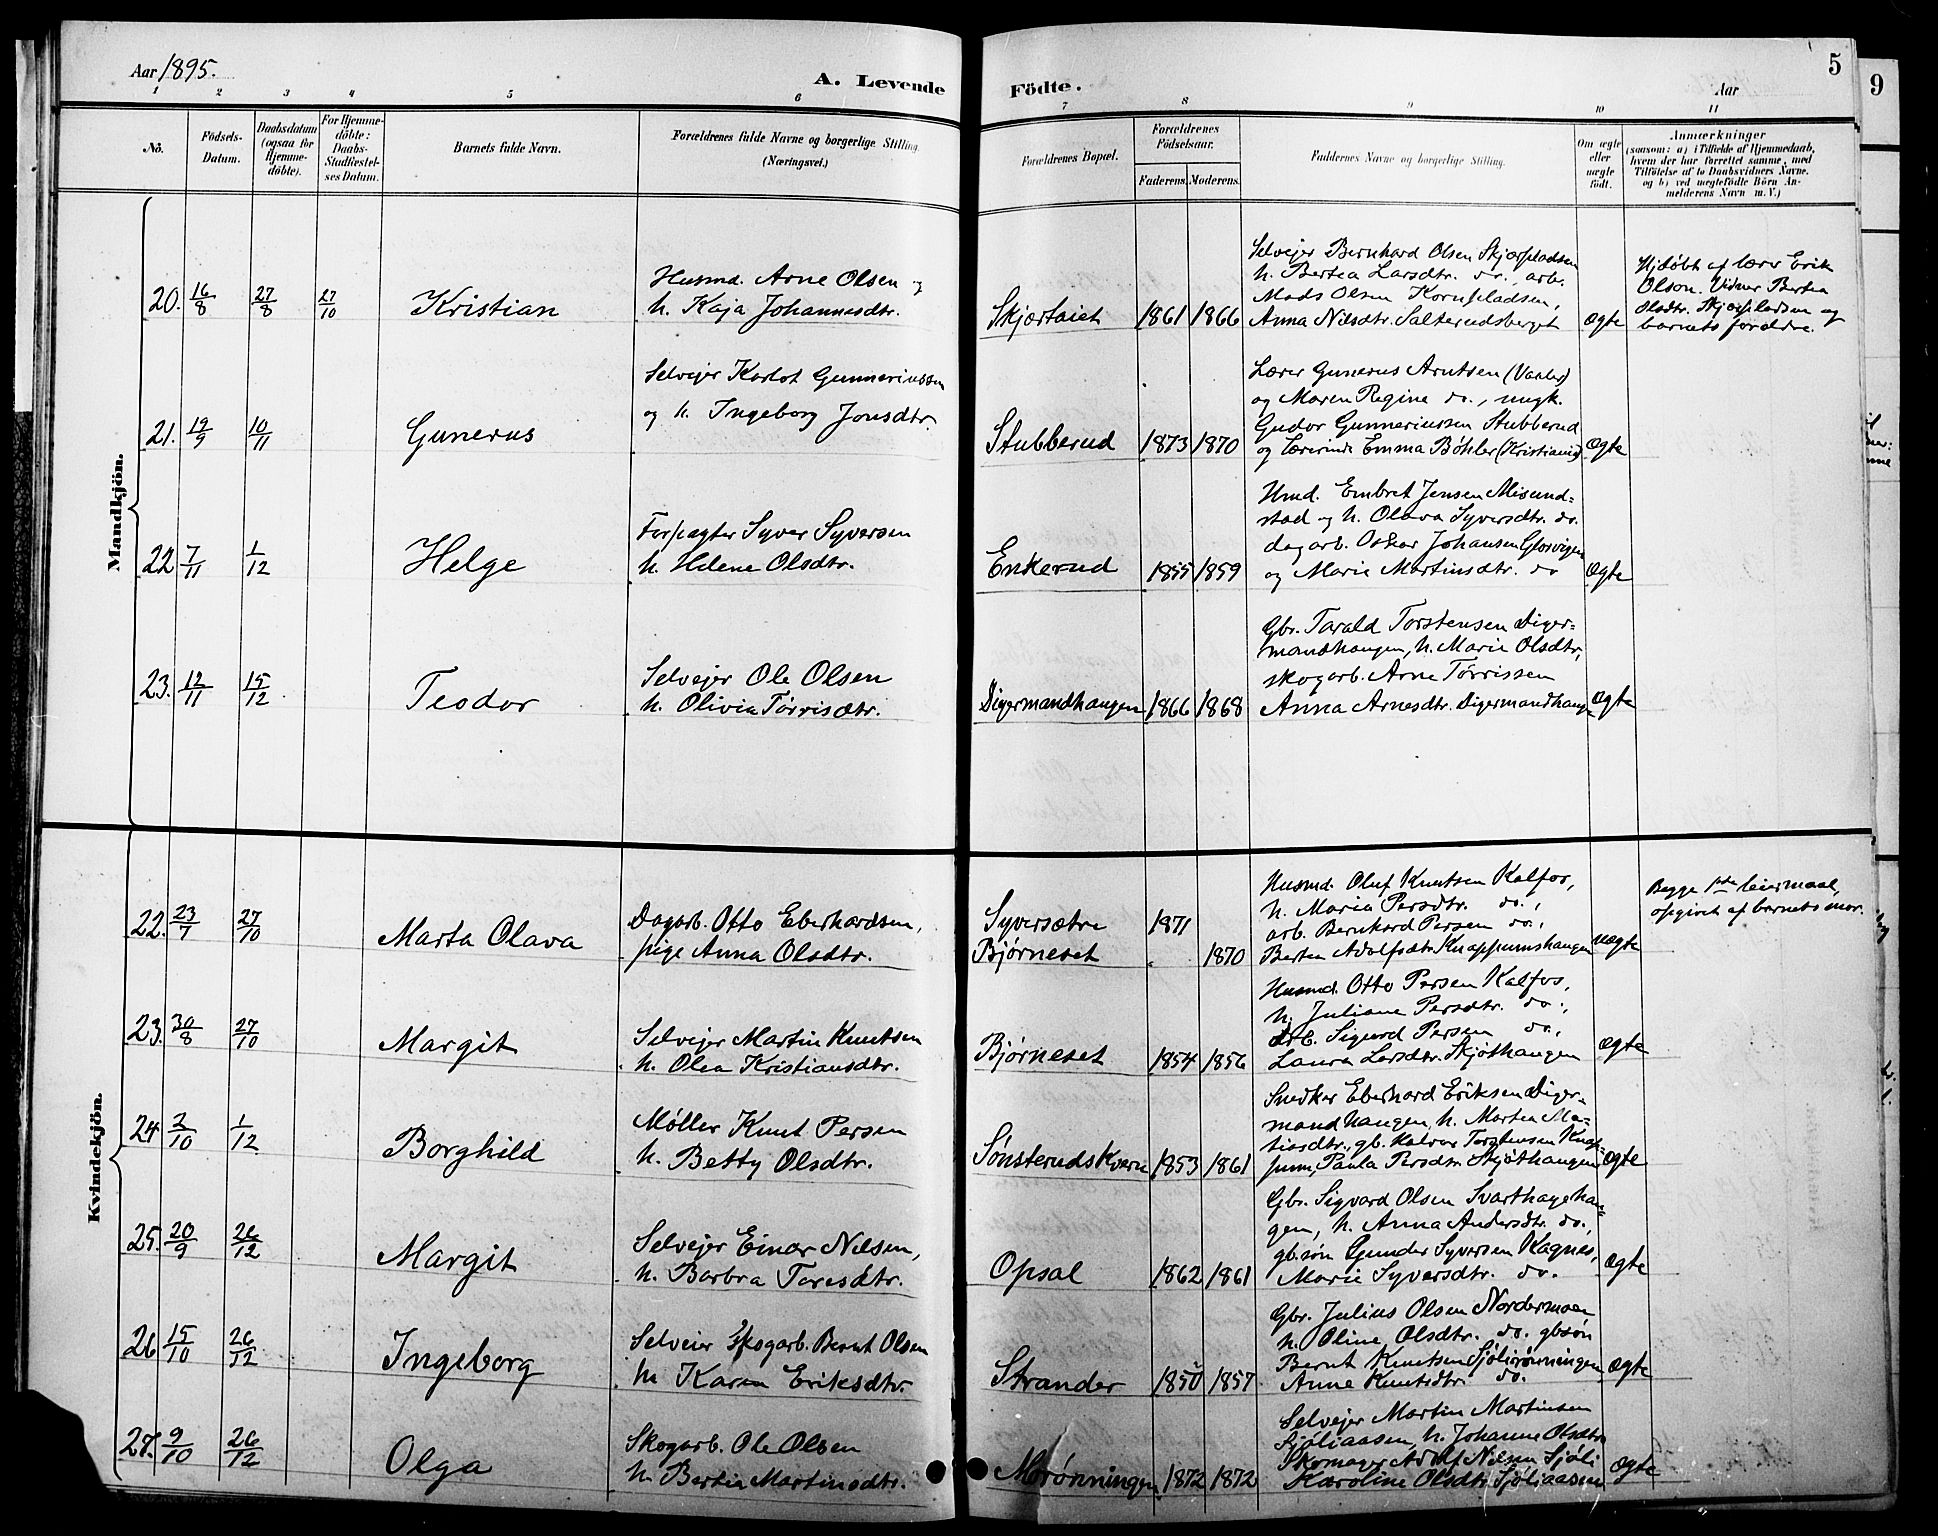 Aar 1895.
A. Levende
Födte.
Aar
5
9
1 2 3 4 5 6 7 8 9 10 11
No.
Födsels-
Datum.
Daabsdatum
(ogsaa for
Hjemme-
döbte).
For Hjemme-
döbte:
Daabs-
Stadfæstel-
ses Datum.
Barnets fulde Navn.
Forældrenes fulde Navne og borgerlige Stilling
(Næringsvei.)
Forældrenes Bopæl.
Forældrenes
Födselsaar.
Faderens.
Moderens.
Faddernes Navne og borgerlige Stilling.
Om ægte
eller
uægte
födt.
Anmærkninger
(saasom: a) i Tilfælde af Hjemmedaab,
hvem der har forrettet samme, med
Tilföielse af to Daabsvidners Navne.
og b) ved uægtefödte Börn An-
melderens Navn m. V.)
Mandkjön.
20. 16/8 27/8 27/10 Kristian
Husmd. Arne Olsen og
h. Kaja Johannesdtr.
Skjærtaiet 1861 1866
Selveier Bernhard Olsen Skjærpladsen
h. Bertea Larsdtr. do., arb.
Mads Olsen Kornpladsen,
Anna Nilsdtr. Salterudsberget
Ægte
Hjdøbt af lærer Erik
Olson. Vidner Bertea
Olsdtr. Skjærpladsen og
barnets forældre.
21. 19/9 10/11 Gunerus
Selvejer Karlot Gunneriussen
og h. Ingeborg Jonsdtr.
Stubberud 1873 1870
Lærer Gunerus Arntsen (Vaaler)
og Maren Regine do., ungk.
Gudor Gunneriussen Stubberud
og Lærerinde Emma Bøhler (Kristiania)
Ægte
22 7/11 1/12 Helge
Forpagter Syver Syversen
h. Helene Olsdtr.
Enkerud 1855 1859
Hmd. Embret Jensen Misund-
stad og h. Olava Syversdtr. do.
dagarb. Oskar Johansen Glosvigen
og Marie Martinsdtr. do
Ægte
23. 12/11 15/12 Teodor
Selvejer Ole Olsen
h. Olivia Tørrisdtr.
Digermandhaugen 1866 1868
Gbr. Tarald Torstensen Diger-
mandhaugen, h. Marie Olsdtr,
skogarb. Arne Tørrissen
Anna Arnesdtr. Digermandhaug
Ægte
Kvindekjön.
22. 23/7 27/10 Marta Olava
Dagarb. Otto Eberhardsen,
pige Anna Olsdtr.
Syversætre 1871
Bjørneset 1870
Husmd. Oluf Knutsen Kalfos,
h. Maria Persdtr. do.,
arb. Bernhard Persen do.,
Bertea Adolfsdtr. Knappumshaugen
uægte
Begge 1ste leiermaal,
opgivet af barnets mor.
23. 30/8 27/10 Margit
Selvejer Martin Knutsen
h. Olea Kristiansdtr.
Bjørneset 1854 1856
Husmd. Otto Persen Kalfos,
h. Juliane Persdtr. do.,
arb. Sigurd Persen do.,
Laura Larsdtr. Skjøthaugen
Ægte
24 2/10 1/12 Borghild
Møller Knut Persen
h. Betty Olsdtr.
Sønsteruds Kvern 1853 1861
Snedker Eberhard Eriksen Diger-
mandhaugen, h. Martea Ma-
tiasdtr., gb. Halvor Torstensen Knap-
pum, Paula Persdtr. Skjøthaugen
Ægte
25. 20/9 26/12 Margit
Selvejer Einar Nilsen,
h. Barbra Toresdtr.
Opsal 1862 1861
Gbr. Sigvard Olsen Svarthagehau-
gen, h. Anna Andersdtr. do.,
gb.søn Gunder Syversen Kagnes,
Marie Syversdtr. do.
Ægte
26 15/10 26/12 Ingeborg
Selveier Skogarb. Bernt Olsen
h. Karen Eriksdtr.
Strander 1850 1857
Gbr. Julius Olsen Nordermoen
h. Oline Olsdtr. do. gbsøn
Bernt Knutsen Sjølirønningen
Anne Knutsdtr. do.
Ægte
27. 9/10 26/12 Olga
Skogarb. Ole Olsen
h. Bertea Martinsdtr.
Morønningen 1872 1872
Selvejer Martin Martinsen
Sjøliaasen, h. Johanne Olsdtr.
Skomager Adolf Nilsen Sjøli
Karoline Olsdtr. Sjøliaasen
Ægte